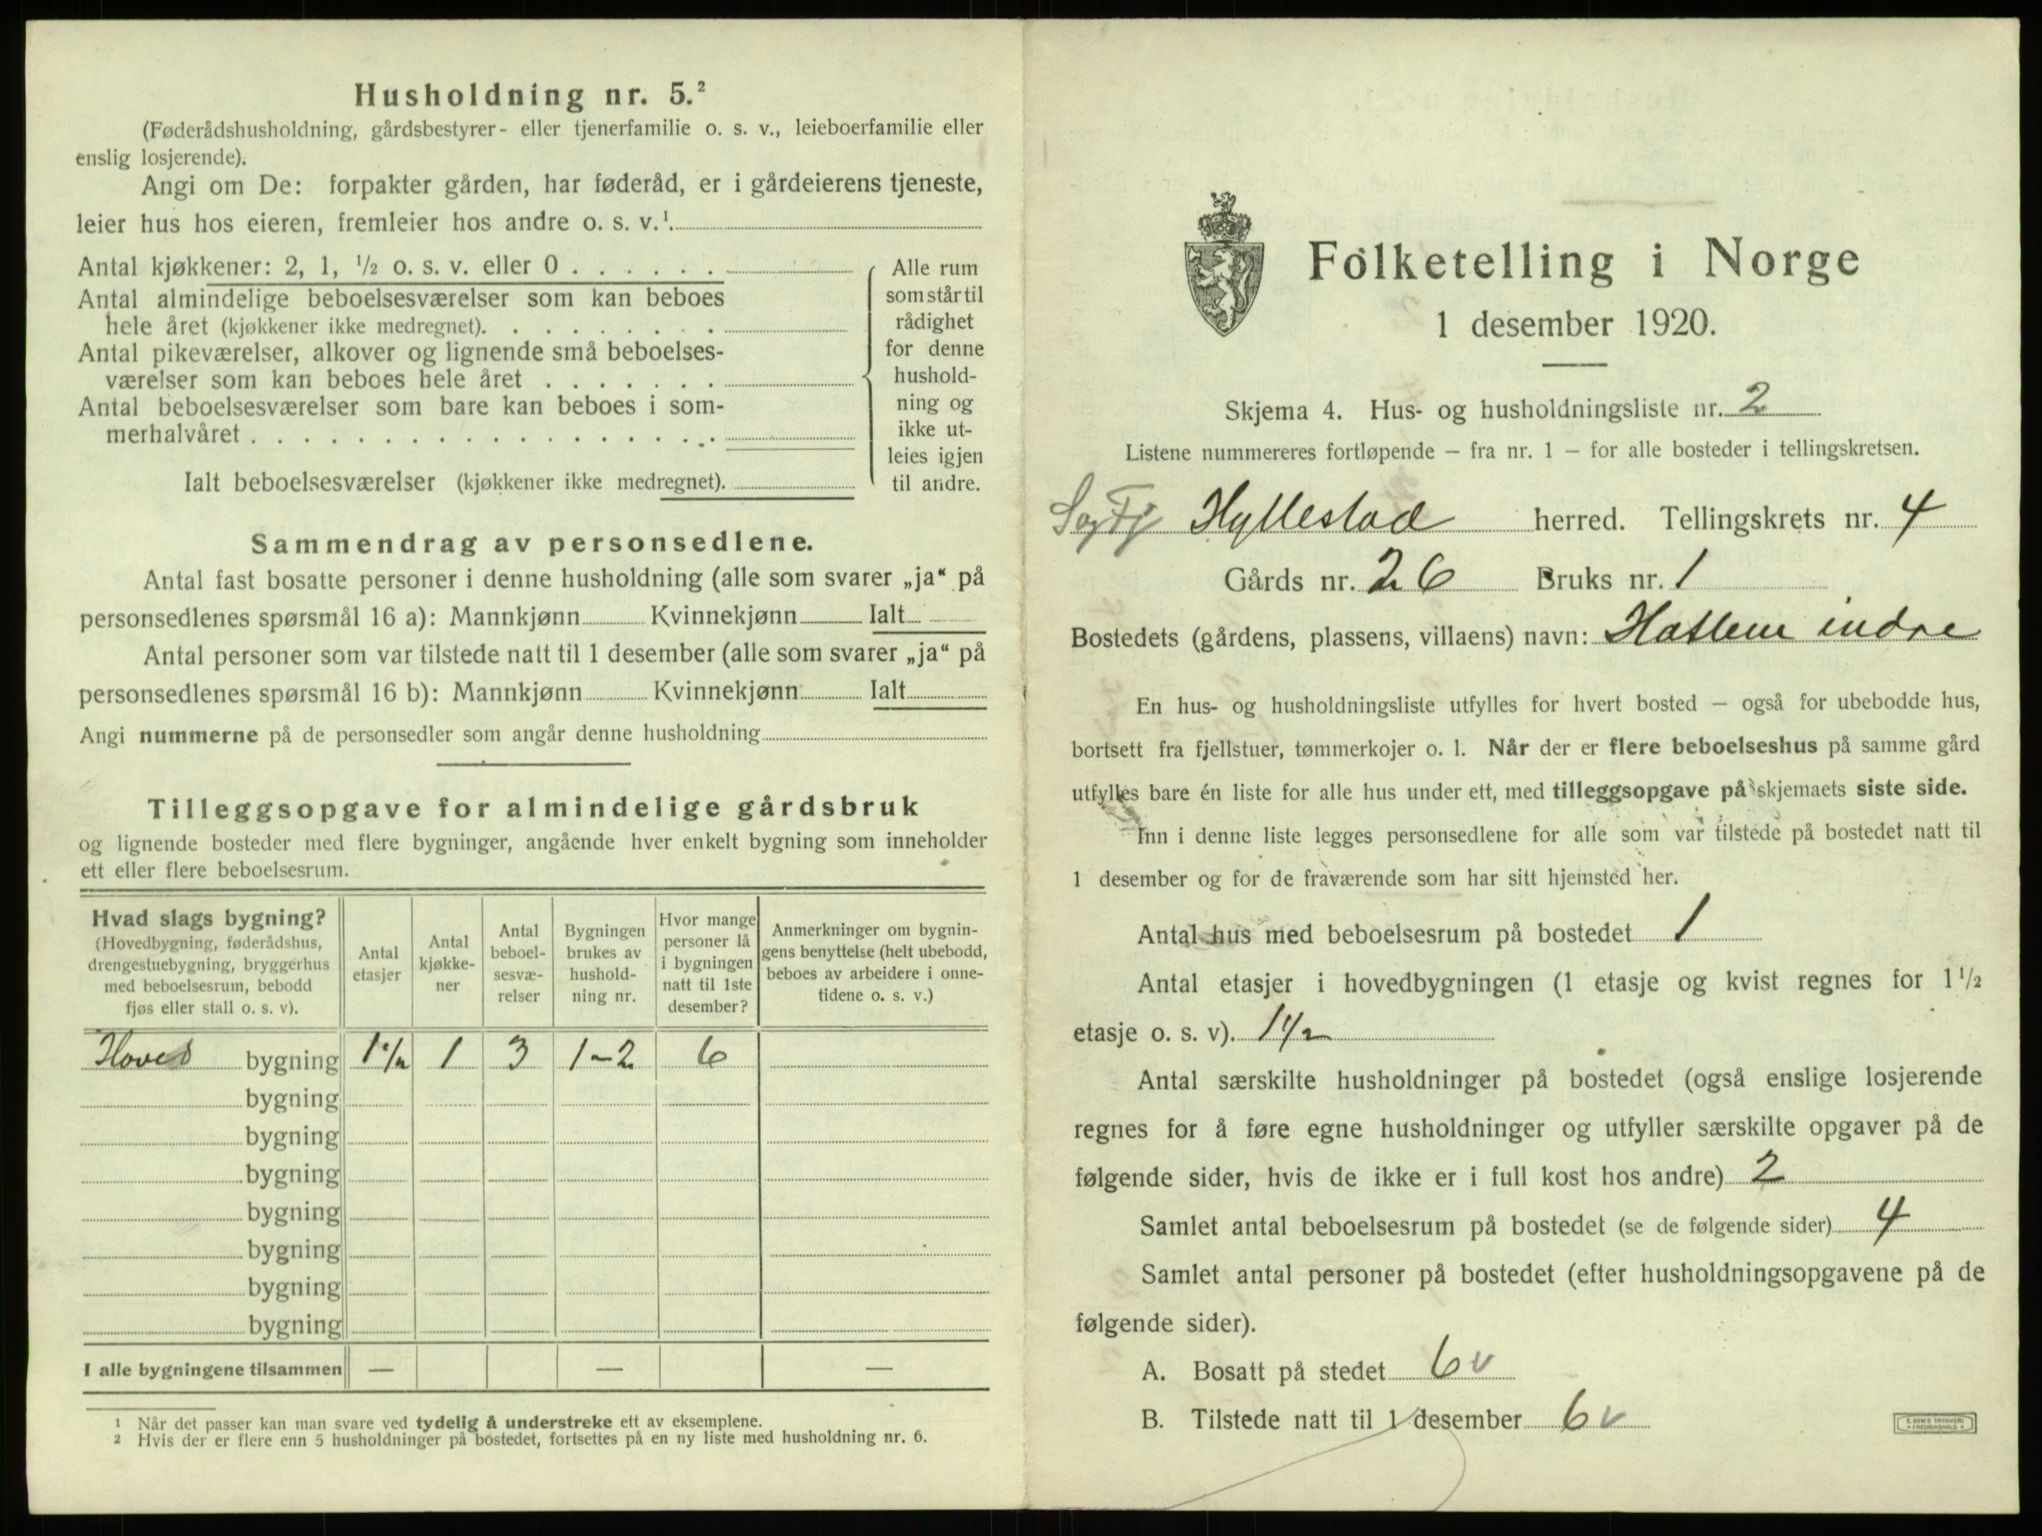 Husholdning nr. 5.²
(Føderådshusholdning, gårdsbestyrer- eller tjenerfamilie o. s. v., leieboerfamilie eller
enslig losjerende).
Angi om De: forpakter gården, har føderåd, er i gårdeierens tjeneste,
leier hus hos eieren, fremleier hos andre o. s. v.¹.
Antal kjøkkener: 2, 1, ½ o. s. v. eller 0
Antal almindelige beboelsesværelser som kan beboes
hele året (kjøkkener ikke medregnet).
Antal pikeværelser, alkover og lignende små beboelses-
værelser som kan beboes hele året
Antal beboelsesværelser som bare kan beboes i som-
merhalvåret
Ialt beboelsesværelser (kjøkkener ikke medregnet).
Alle rum
som står til
rådighet
for denne
hushold-
ning og
ikke ut-
leies igjen
til andre.
Sammendrag av personsedlene.
Antal fast bosatte personer i denne husholdning (alle som svarer „ja“ på
personsedlenes spørsmål 16 a): Mannkjønn Kvinnekjønn Ialt
Antal personer som var tilstede natt til 1 desember (alle som svarer „ja“ på
personsedlenes spørsmål 16 b): Mannkjønn Kvinnekjønn Ialt
Angi nummerne på de personsedler som angår denne husholdning
Tilleggsopgave for almindelige gårdsbruk
og lignende bosteder med flere bygninger, angående hver enkelt bygning som inneholder
ett eller flere beboelsesrum.
Hvad slags bygning?
(Hovedbygning, føderådshus,
drengestuebygning, bryggerhus
med beboelsesrum, bebodd
fjøs eller stall o. s. v).
Antal
etasjer
Antal
kjøkke-
ner
Antal
beboel-
sesvæ-
relser
Bygningen
brukes av
hushold-
ning nr.
Hvor mange
personer lå
i bygningen
natt til 1ste
desember?
Anmerkninger om bygnin-
gens benyttelse (helt ubebodd,
beboes av arbeidere i onne-
tidene o. s. v.)
Hoved bygning 1½ 1 3 1-2 6
bygning
bygning
bygning
bygning
bygning
bygning
bygning
I alle bygningene tilsammen — — —
¹ Når det passer kan man svare ved tydelig å understreke ett av eksemplene.
² Hvis der er flere enn 5 husholdninger på bostedet, fortsettes på en ny liste med husholdning nr. 6.
Folketelling i Norge
1 desember 1920.
Skjema 4. Hus- og husholdningsliste nr. 2
Listene nummereres fortløpende – fra nr. 1 – for alle bosteder i tellingskretsen.
SogFj Hyllestad herred. Tellingskrets nr. 4
Gårds nr. 26 Bruks nr. 1
Bostedets (gårdens, plassens, villaens) navn: Hatlem indre
En hus- og husholdningsliste utfylles for hvert bosted – også for ubebodde hus,
bortsett fra fjellstuer, tømmerkojer o. l. Når der er flere beboelseshus på samme gård
utfylles bare én liste for alle hus under ett, med tilleggsopgave på skjemaets siste side.
Inn i denne liste legges personsedlene for alle som var tilstede på bostedet natt til
1 desember og for de fraværende som har sitt hjemsted her.
Antal hus med beboelsesrum på bostedet 1
Antal etasjer i hovedbygningen (1 etasje og kvist regnes for 1½
etasje o. s. v). 1½
Antal særskilte husholdninger på bostedet (også enslige losjerende
regnes for å føre egne husholdninger og utfyller særskilte opgaver på de
følgende sider, hvis de ikke er i full kost hos andre) 2
Samlet antal beboelsesrum på bostedet (se de følgende sider) 4
Samlet antal personer på bostedet (efter husholdningsopgavene på de
følgende sider).
A. Bosatt på stedet 6 v
B. Tilstede natt til 1 desember 6 v